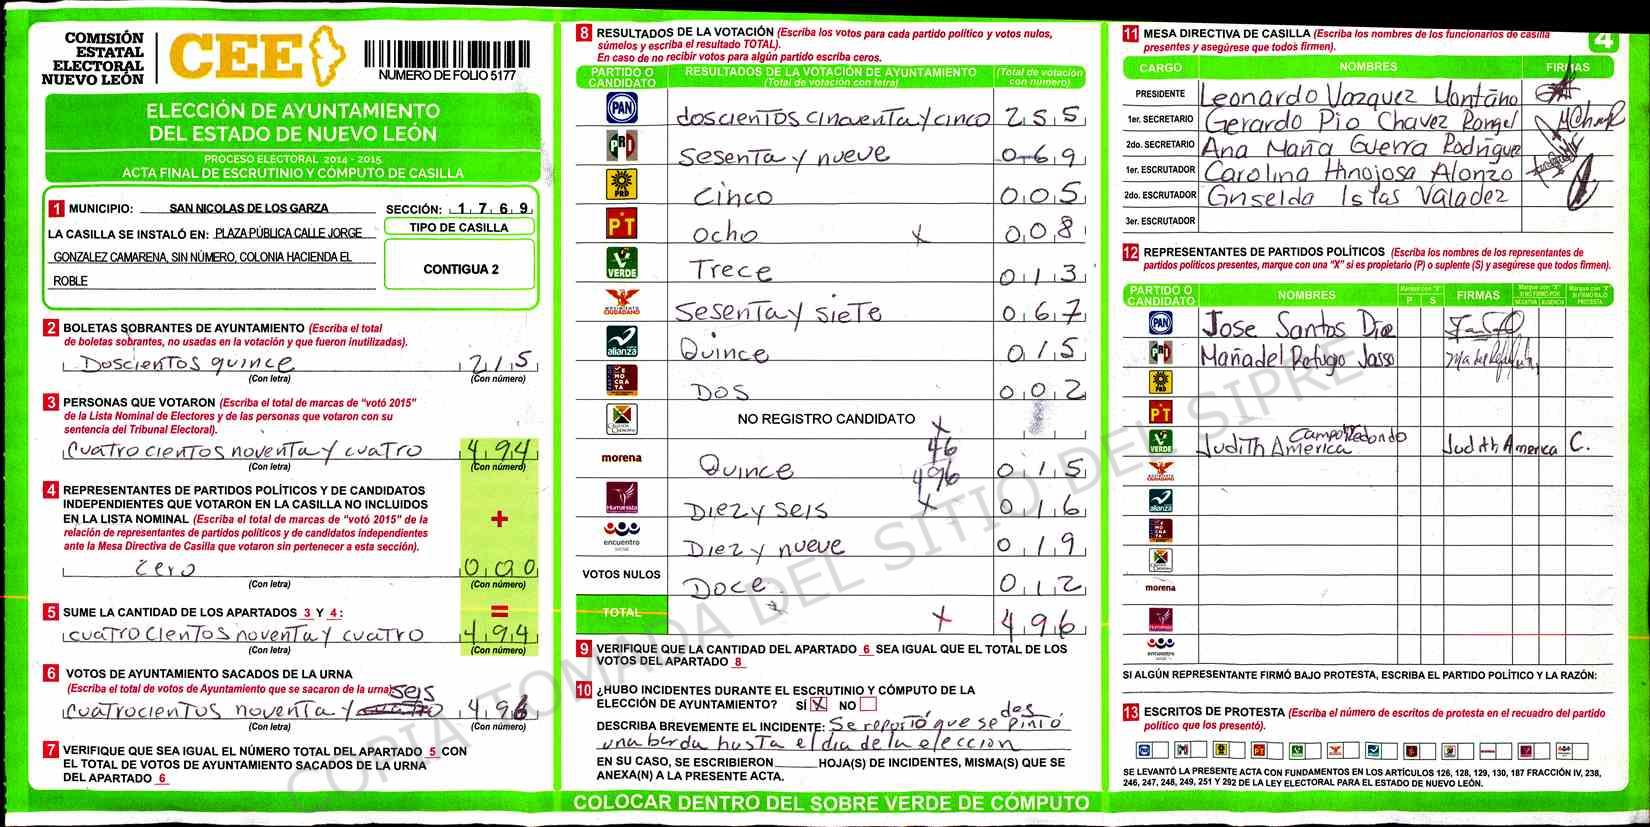 COMISIÓN
ESTATAL
ELECTORAL
NUEVO LEÓN
CEE
NUMERO DE FOLIO 5177
ELECCIÓN DE AYUNTAMIENTO
DEL ESTADO DE NUEVO LEÓN
PROCESO ELECTORAL 2014 - 2015
ACTA FINAL DE ESCRUTINIO Y CÓMPUTO DE CASILLA
1 MUNICIPIO: SAN NICOLAS DE LOS GARZA SECCIÓN: 1 7 6 9
LA CASILLA SE INSTALÓ EN: PLAZA PÚBLICA CALLE JORGE
GONZALEZ CAMARENA, SIN NÚMERO, COLONIA HACIENDA EL
ROBLE
TIPO DE CASILLA
CONTIGUA 2
2 BOLETAS SOBRANTES DE AYUNTAMIENTO (Escriba el total
de boletas sobrantes, no usadas en la votación y que fueron inutilizadas).
Doscientos quince 2 1 5
(Con letra) (Con número)
3 PERSONAS QUE VOTARON (Escriba el total de marcas de “votó 2015”
de la Lista Nominal de Electores y de las personas que votaron con su
sentencia del Tribunal Electoral).
cuatrocientos noventa y cuatro 4 9 4
(Con letra) (Con número)
4 REPRESENTANTES DE PARTIDOS POLÍTICOS Y DE CANDIDATOS
INDEPENDIENTES QUE VOTARON EN LA CASILLA NO INCLUIDOS
EN LA LISTA NOMINAL (Escriba el total de marcas de “votó 2015” de la
relación de representantes de partidos políticos y de candidatos independientes
ante la Mesa Directiva de Casilla que votaron sin pertenecer a esta sección).
+
cero 0 0 0
(Con letra) (Con número)
5 SUME LA CANTIDAD DE LOS APARTADOS 3 Y 4: =
cuatrocientos noventa y cuatro 4 9 4
(Con letra) (Con número)
6 VOTOS DE AYUNTAMIENTO SACADOS DE LA URNA
(Escriba el total de votos de Ayuntamiento que se sacaron de la urna)
seis
cuatrocientos noventa y cuatro 4 9 6
(Con letra) (Con número)
7 VERIFIQUE QUE SEA IGUAL EL NÚMERO TOTAL DEL APARTADO 5 CON
EL TOTAL DE VOTOS DE AYUNTAMIENTO SACADOS DE LA URNA
DEL APARTADO 6
8 RESULTADOS DE LA VOTACIÓN (Escriba los votos para cada partido político y votos nulos,
súmelos y escriba el resultado TOTAL).
En caso de no recibir votos para algún partido escriba ceros.
PARTIDO O CANDIDATO
RESULTADOS DE LA VOTACIÓN DE AYUNTAMIENTO
(Total de votación con letra)
(Total de votación con número)
PAN doscientos cincuenta y cinco 2 5 5
PRD sesenta y nueve 0 6 9
PRD cinco 0 0 5
PT ocho x 0 0 8
VERDE Trece 0 1 3
MOVIMIENTO CIUDADANO sesenta y siete 0 6 7
alianza Quince 0 1 5
DEMOCRATA DOS 0 0 2
NO REGISTRO CANDIDATO
x
46
morena Quince 496 0 1 5
Humanista Diez y seis x 0 1 6
encuentro social Diez y nueve 0 1 9
VOTOS NULOS Doce 0 1 2
TOTAL x 4 9 6
9 VERIFIQUE QUE LA CANTIDAD DEL APARTADO 6 SEA IGUAL QUE EL TOTAL DE LOS
VOTOS DEL APARTADO 8
10 ¿HUBO INCIDENTES DURANTE EL ESCRUTINIO Y CÓMPUTO DE LA
ELECCIÓN DE AYUNTAMIENTO? SÍ X NO
DESCRIBA BREVEMENTE EL INCIDENTE: Se reportó que se des pintó
una barda hasta el dia de la eleccion
EN SU CASO, SE ESCRIBIERON HOJA(S) DE INCIDENTES, MISMA(S) QUE SE
ANEXA(N) A LA PRESENTE ACTA.
COLOCAR DENTRO DEL SOBRE VERDE DE CÓMPUTO
4
11 MESA DIRECTIVA DE CASILLA (Escriba los nombres de los funcionarios de casilla
presentes y asegúrese que todos firmen).
CARGO NOMBRES FIRMAS
PRESIDENTE Leonardo Vazquez Montaño
1er. SECRETARIO Gerardo Pio Chavez Rangel
2do. SECRETARIO Ana Maria Guerra Rodriguez
1er. ESCRUTADOR Carolina Hinojosa Alonzo
2do. ESCRUTADOR Griselda Islas Valadez
3er. ESCRUTADOR
12 REPRESENTANTES DE PARTIDOS POLÍTICOS (Escriba los nombres de los representantes de
partidos políticos presentes, marque con una “X” si es propietario (P) o suplente (S) y asegúrese que todos firmen).
PARTIDO O CANDIDATO NOMBRES Marque con "X" P S FIRMAS
PAN Jose Santos
Maria del Refugio Jasso
PRD
PT
VERDE Judith America Campos Redondo Judith America C.
alianza
morena
Humanista
encuentro social
SI ALGÚN REPRESENTANTE FIRMÓ BAJO PROTESTA, ESCRIBA EL PARTIDO POLÍTICO Y LA RAZÓN:
13 ESCRITOS DE PROTESTA (Escriba el número de escritos de protesta en el recuadro del partido
político que los presentó).
SE LEVANTÓ LA PRESENTE ACTA CON FUNDAMENTOS EN LOS ARTÍCULOS 126, 128, 129, 130, 187 FRACCIÓN IV, 238,
246, 247, 248, 249, 251 Y 292 DE LA LEY ELECTORAL PARA EL ESTADO DE NUEVO LEÓN.
COPIA TOMADA DEL SITIO DEL SIPRE